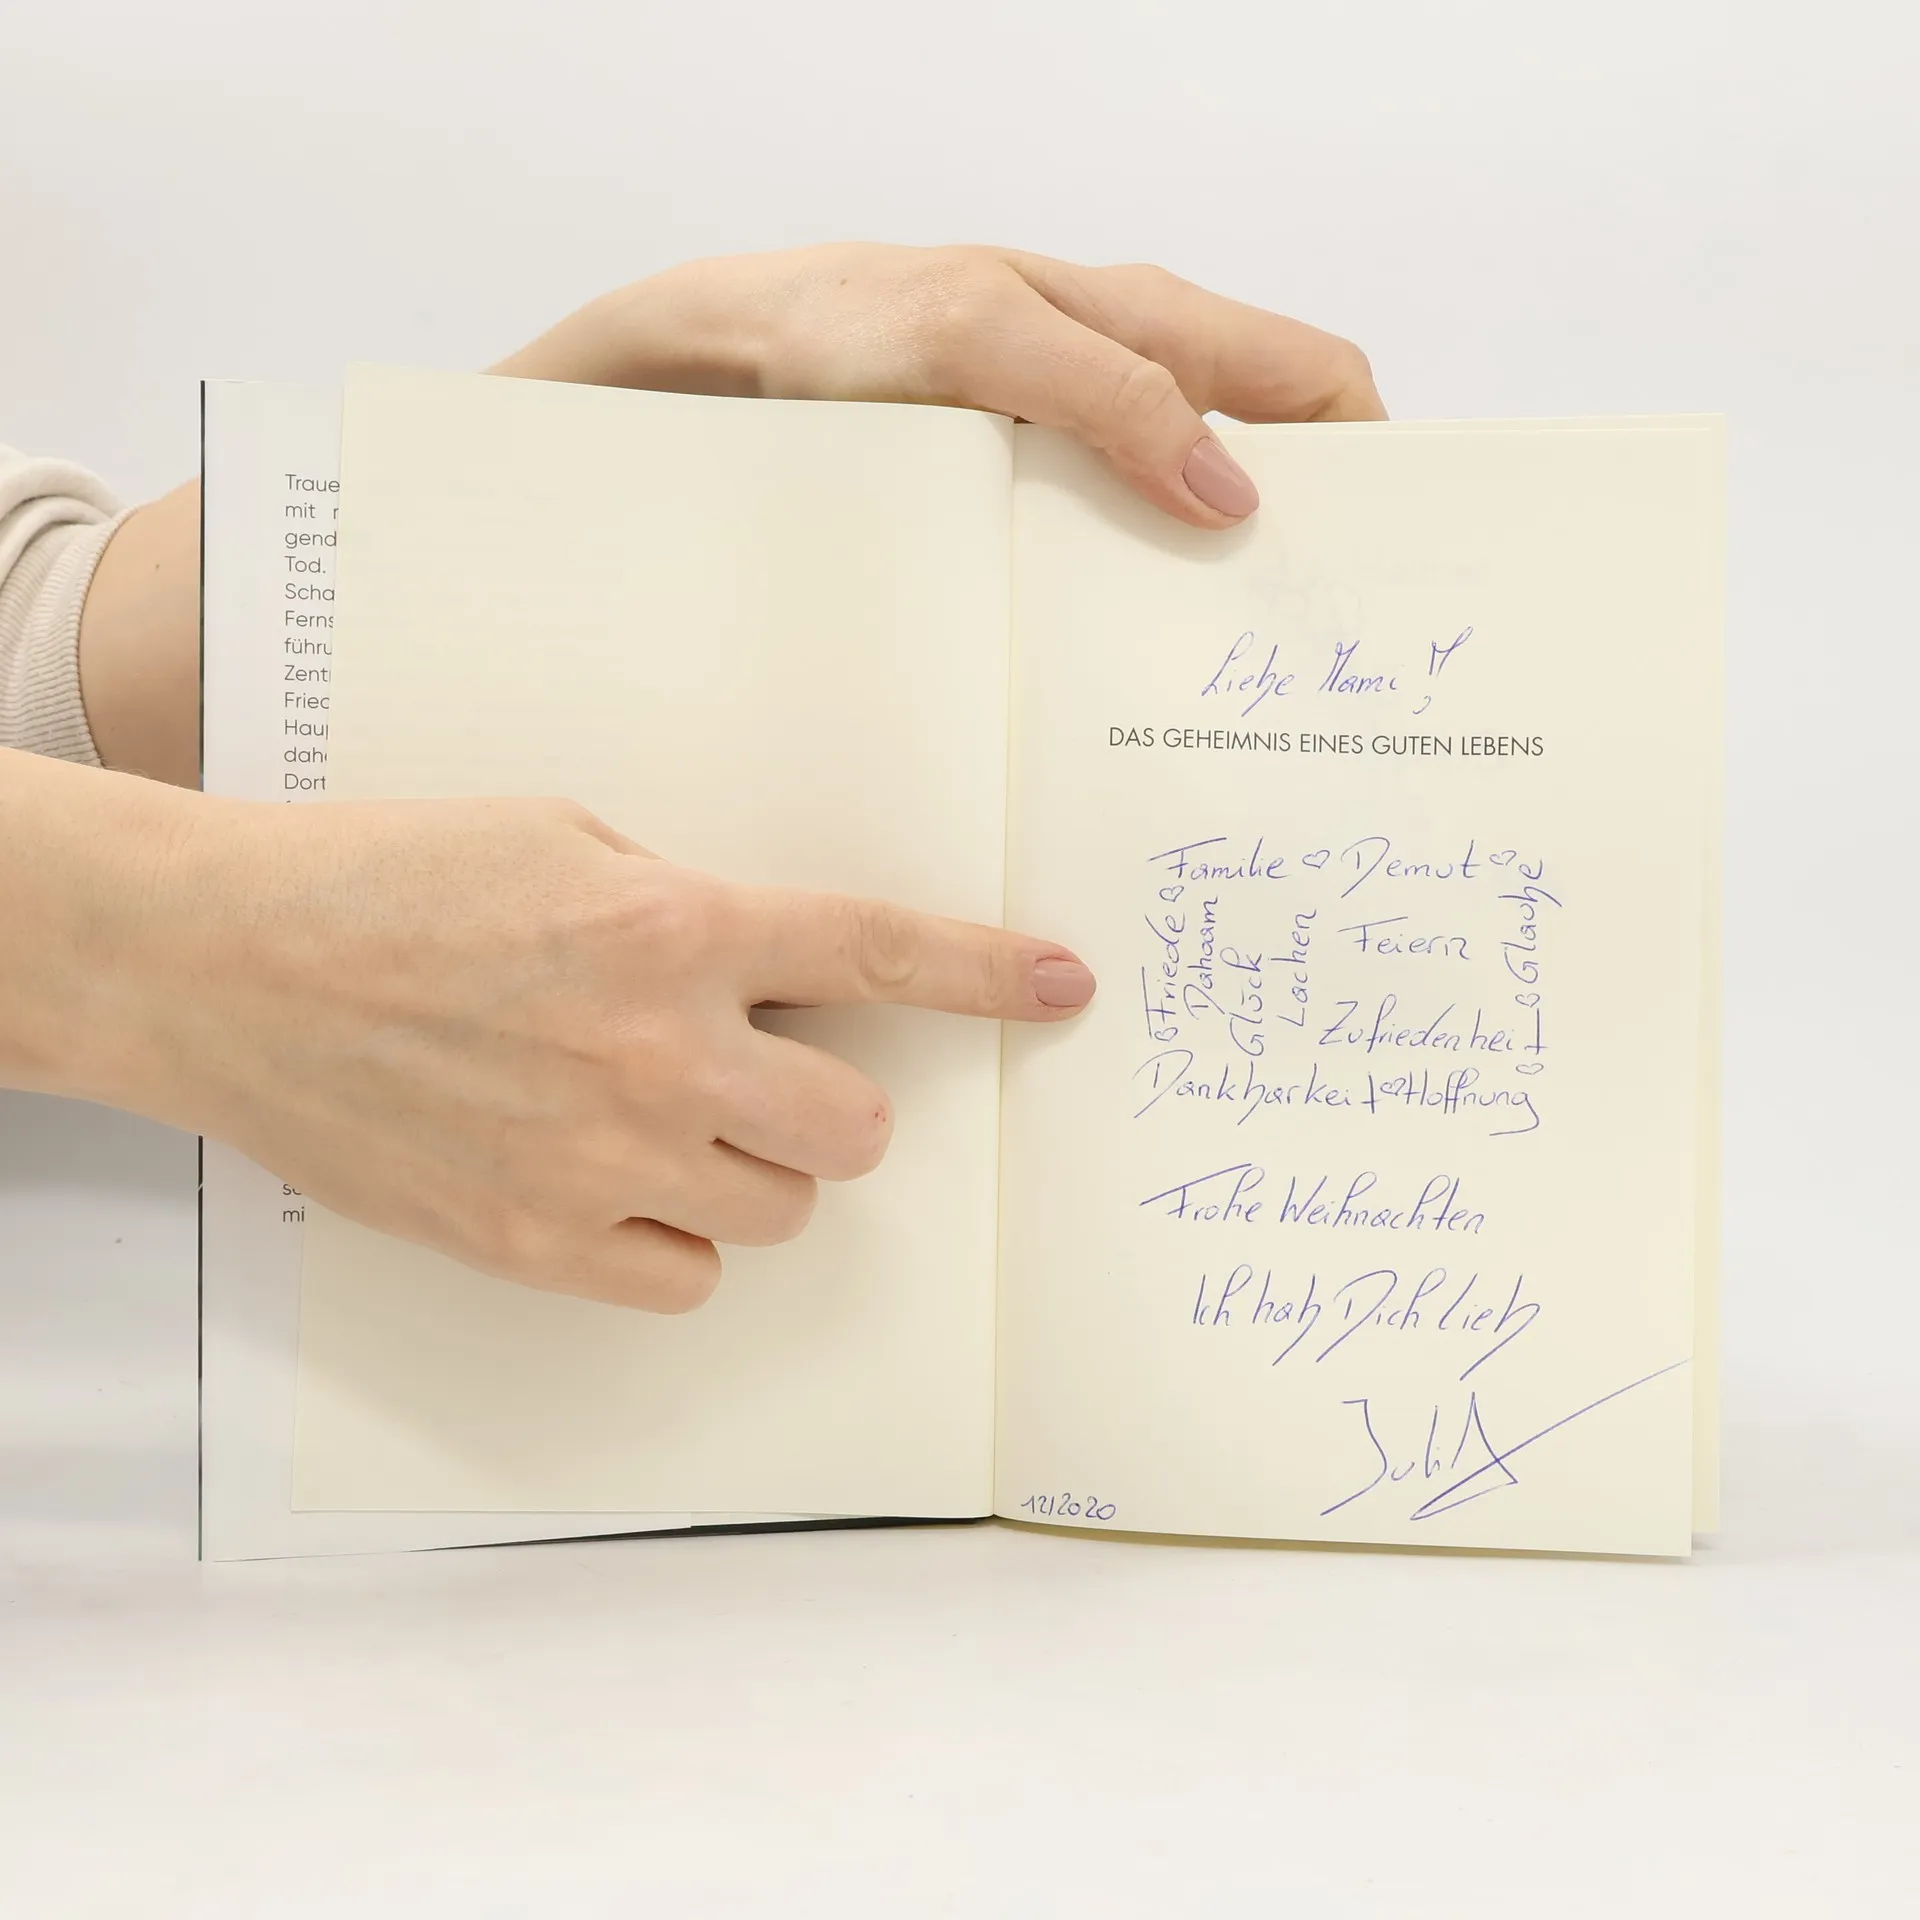 Traue
mit r
gend
Tod.
Scha
Ferns
führu
Zent
Fried
Hau
dah
Dort
mi
Liebe Mami !
DAS GEHEIMNIS EINES GUTEN LEBENS
Familie ♡ Demut ♡
Friede
Dahoam
Glück
Lachen
Feiern
Glaube
Zufriedenheit
Dankbarkeit ♡ Hoffnung
Frohe Weihnachten
Ich hab Dich lieb
JuliA
12/2020